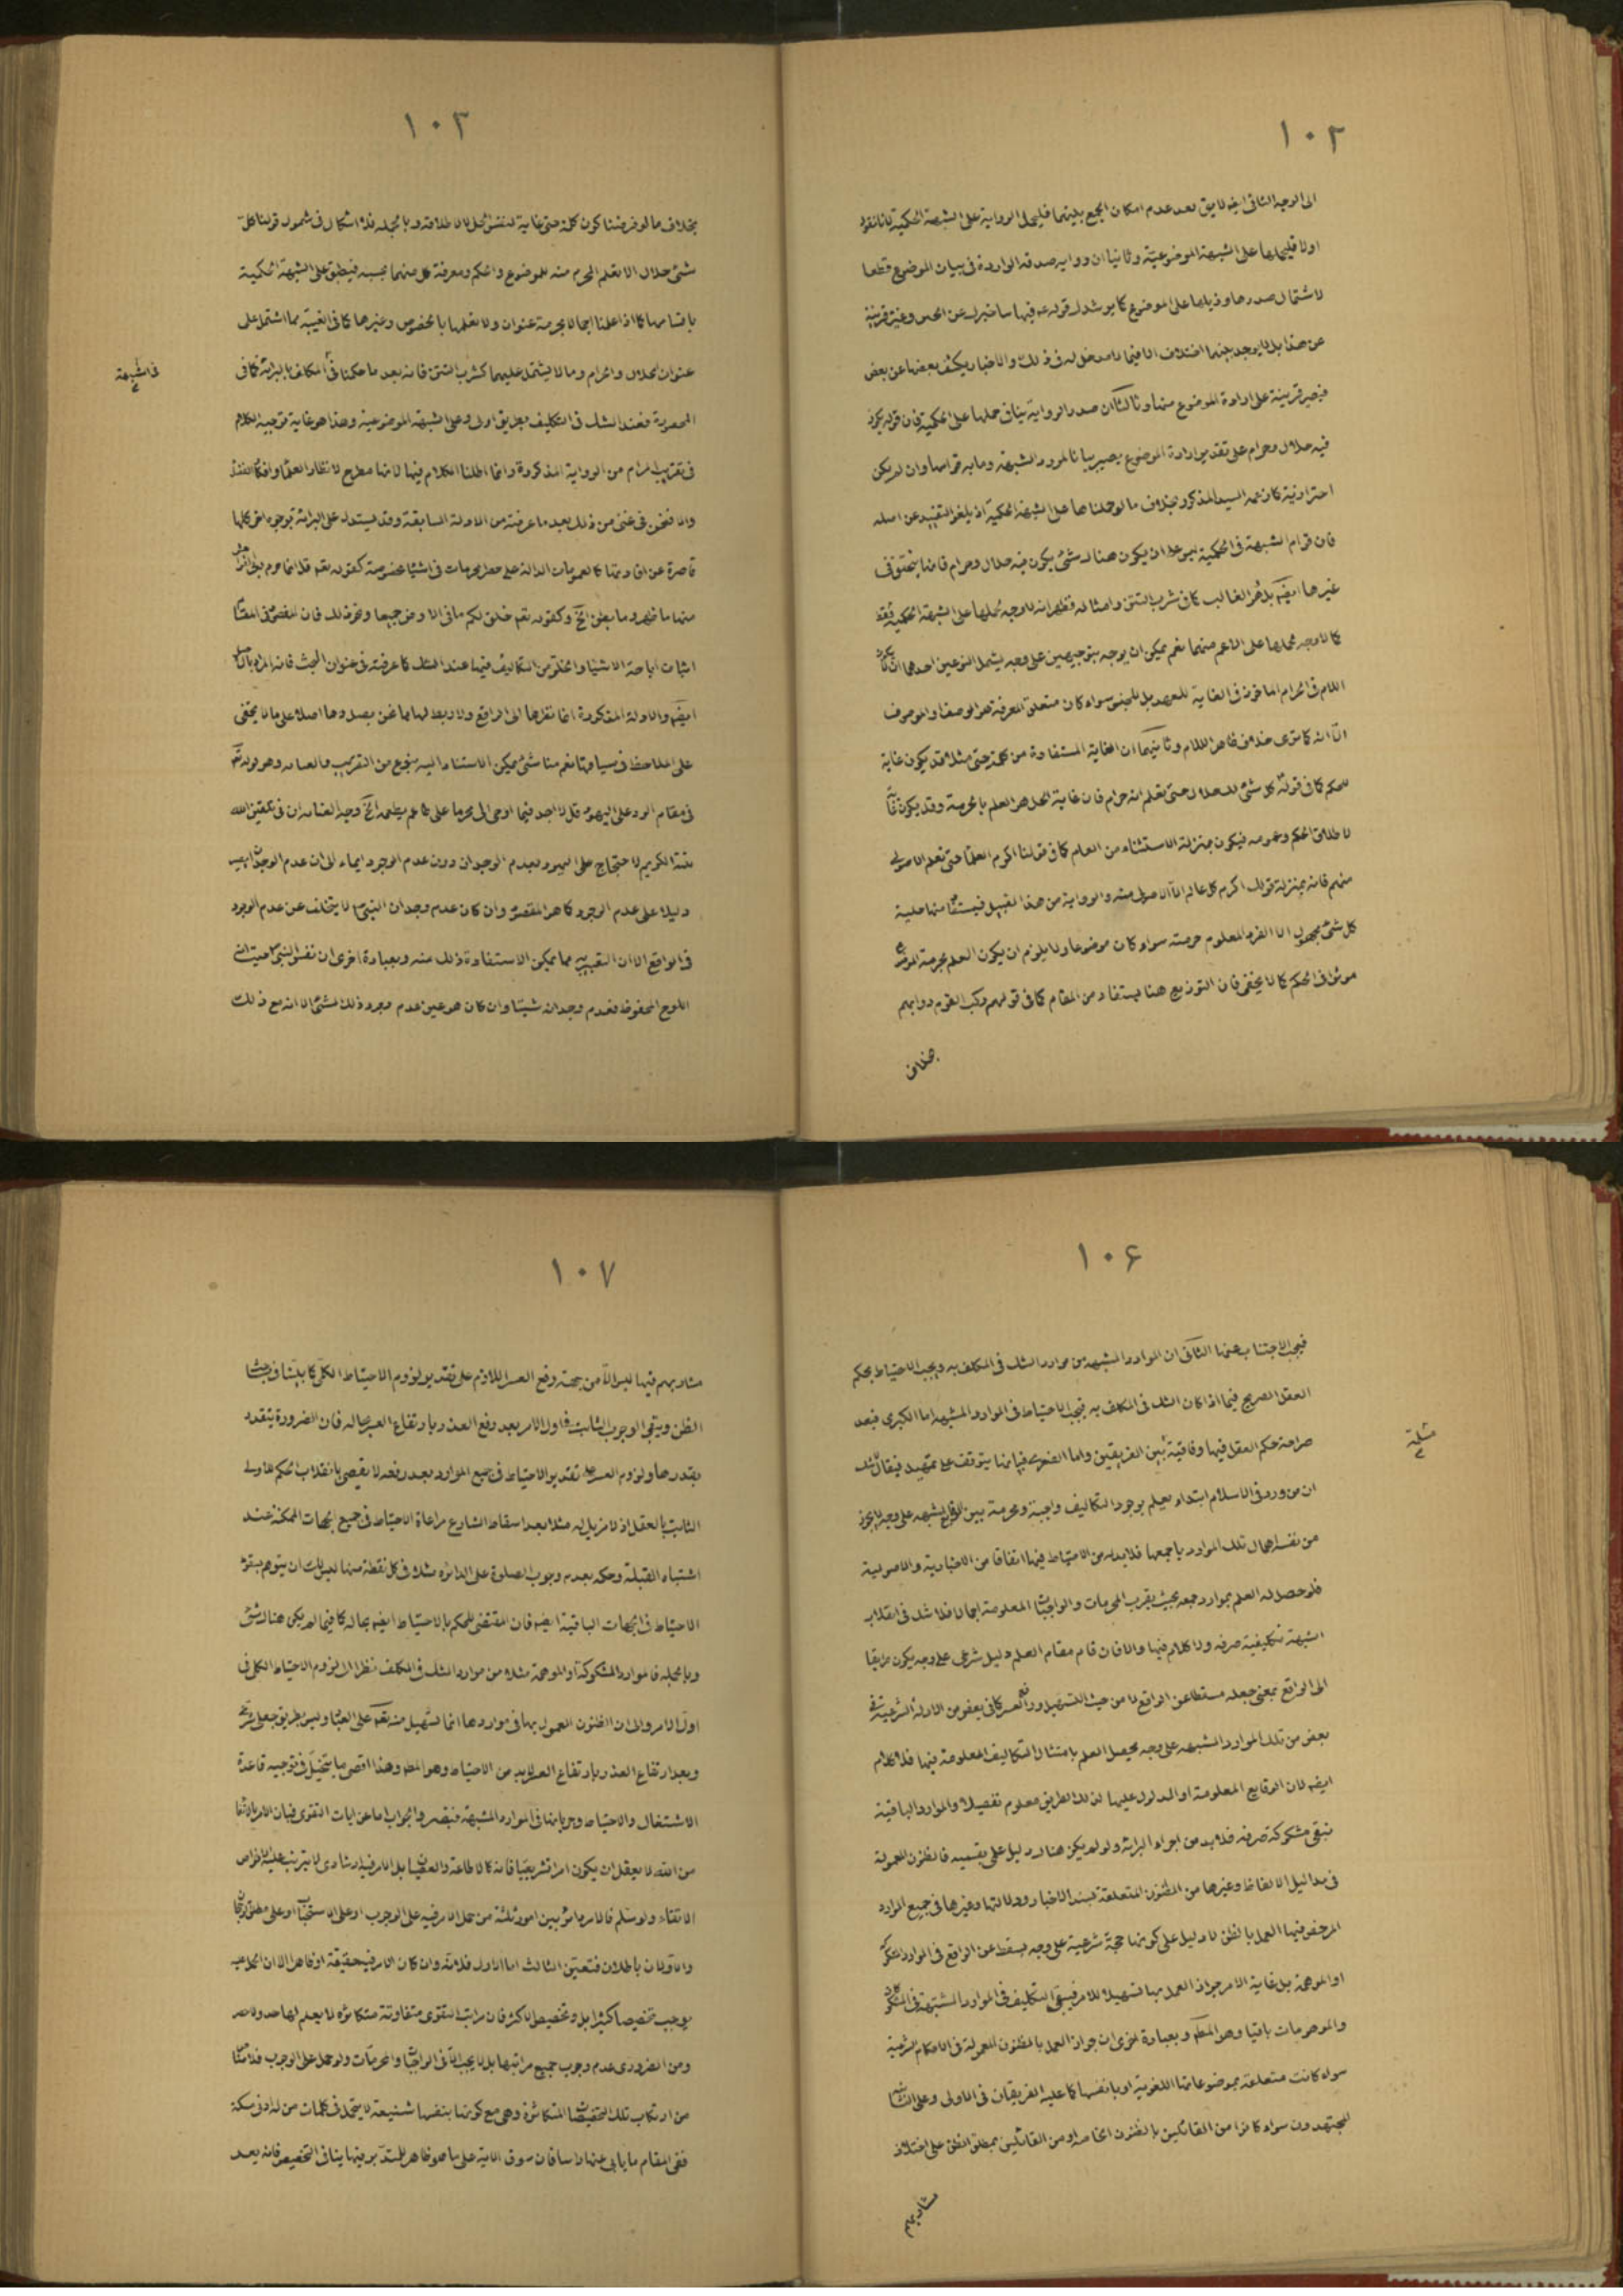 ١٠٢
الى الوجه الثانى ايضا لا يق بعد عدم امكان الجمع بينهما فليحمل الرواية على الشبهة الحكمية لانا نقول
اولا فليحملها على الشبهة الموضوعية وثانيا ان رواية صدقة الواردة فى بيان الموضوع قطعا
لاشتمال صدرها وذيلها على الموضوع كما يرشد اليه قوله فيها
عن هذا بل لا يوجد بينهما اختلاف الا فيما لا مدخل له فى ذلك والاخبار يكشف بعضها عن بعض
فيصير قرينة على ارادة الموضوع منها وثالثا ان صدر الرواية ينافى حملها على الحكمية فان قوله يكون
فيه حلال وحرام على تقدير ارادة الموضوع يصير بيانا لمورد الشبهة وما به قوامها وان لم يكن
احترازية كما زعمه السيد المذكور بخلاف ما لو حملناها على الشبهة الحكمية اذ يلغو التقييد عن اصله
فان قوام الشبهة فى الحكمية ليس على ان يكون هناك شئ يكون فيه حلال وحرام فانها يتحقق فى
غيرها ايضا بل هو الغالب كما فى شرب التتن وامثاله فظهر انه لا وجه لحملها على الشبهة الحكمية فقط
كما لا وجه لحملها على الاعم منهما نعم يمكن ان يوجه بتوجيهين على وجه يشمل النوعين احدهما ان يكون
اللام فى الحرام الماخوذ فى الغاية للعهد بل للجنس سواء كان متعلق المعرفة هو الوصف او الموصوف
الا انه كما ترى خلاف ظاهر اللام وثانيهما ان الغاية المستفادة من كلمة حتى مثلا قد يكون غاية
للحكم كما فى قوله كل شئ لك حلال حتى تعلم انه حرام فان غاية الحل هو العلم بالحرمة وقد يكون
لاطلاق الحكم وعمومه فيكون بمنزلة الاستثناء من العام كما فى قولنا اكرم العلماء حتى تعلم الاصولى
منهم فانه بمنزلة قولك اكرم كل عالم الا الاصولى منه والرواية من هذا القبيل فيستفاد منها حلية
كل شئ مجهول الا الفرد المعلوم حرمته سواء كان موضوعا ولا يلزم ان يكون العلم بحرمة الموضوع
موثرا فى الحكم كما لا يخفى فان التوزيع هنا يستفاد من المقام كما فى قولهم ركب القوم دوابهم
بخلاف
١٠٣
بخلاف ما لو فرضنا كون كلمة حتى غاية لنفس الحل لا لاطلاقه وبالجملة فلا اشكال فى شمول قولنا كل
شئ حلال الا تعلم المحرم منه للموضوع والحكم ومعرفة كل منهما بحسبه فينطبق على الشبهة الحكمية
باقسامها كما اذا علمنا اجمالا بحرمة عنوان ولا نعلمها بالخصوص وغيرها كما فى الغيبة مما اشتمل على
عنوان الحلال والحرام وما لا يشتمل عليهما كشرب التتن فانه بعد ما حكمنا فى المكلف به البرائة كما فى
فى الشبهة
المحصورة فعند الشك فى التكليف بطريق اولى وعلى الشبهة الموضوعية وهذا هو غاية توجيه الكلام
فى تقريب المرام من الرواية المذكورة وانما اطلنا الكلام فيها لانها مطرح لانظار العلماء وافكار الفقهاء
والا فنحن فى غنى من ذلك بعد ما عرفت من الادلة السابقة وقد يستدل على البرائة بوجوه اخر كلها
قاصرة عن افادتها كالعمومات الدالة على حصر المحرمات فى اشياء مخصوصة كقوله تعم قل انما حرم ربى الفواحش
منها ما ظهر وما بطن الخ وكقوله تعم خلق لكم ما فى الارض جميعا ونحو ذلك فان المقصود فى المقام
اثبات اباحة الاشياء والخلو من التكاليف فيها عند الشك كما عرفت فى عنوان البحث فانه المراد بالاصل
ايضا والادلة المذكورة انما نظرها الى الواقع ولا ربط لها بما نحن بصددها اصلا على ما لا يخفى
على الملاحظ فى سياقها نعم هنا شئ يمكن الاستناد اليه بنوع من التقريب والعناية وهو قوله تعم
فى مقام الرد على اليهود قل لا اجد فيما اوحى الى محرما على طاعم يطعمه الخ وجه العناية ان فى تلقين الله
نبيه الكريم الاحتجاج على اليهود بعدم الوجدان دون عدم الوجود ايماء الى ان عدم الوجدان يصير
دليلا على عدم الوجود كما هو المقصود وان كان عدم وجدان النبى لا يتخلف عن عدم الوجود
فى الواقع الا ان التعبير به مما يمكن الاستفادة ذلك منه وبعبارة اخرى ان نفس النبى حيث انه
اللوح المحفوظ فعدم وجدانه شيئا وان كان هو عين عدم وجود ذلك الشئ الا انه مع ذلك
١٠۶
فيجب الاجتناب عنها الثانى ان الموارد المشتبهة من موارد الشك فى المكلف به ويجب الاحتياط بحكم
العقل الصريح فيما اذا كان الشك فى المكلف به فيجب الاحتياط فى الموارد المشتبهة اما الكبرى فبعد
صراحة حكم العقل فيها وفاقية بين الفريقين واما الصغرى فبيانها يتوقف على تمهيد فيقال لا شك
مسئلة
ان من ورد فى الاسلام ابتداء يعلم بوجود التكاليف واجبة ومحرمة بين الوقايع المشتبهة على وجه لا يجوز
من نفسه اهمال تلك الموارد باجمعها فلا بد له من الاحتياط فيها اتفاقا من الاخبارية والاصولية
فلو حصل له العلم بموارد جمعه بحيث يقرب المحرمات والواجبات المعلومة اجمالا فلا شك فى انقلاب
الشبهة تكليفية صرفة ولا كلام فيها والا فان قام مقام العلم دليل شرعى على وجه يكون طريقا
الى الواقع بمعنى جعله مسقطا عن الواقع لا من حيث التسهيل ورفع العسر كما فى بعض من الادلة الشرعية فى
بعض من تلك الموارد المشتبهة على وجه يحصل العلم بامتثال التكاليف المعلومة فيها فلا كلام
ايضا لان الوقايع المعلومة او المدلول عليها لذلك الطريق معلوم تفصيلا والموارد الباقية
تبقى مشكوكة صرفة فلا بد من اجراء البرائة ولو لم يكن هناك دليل على تقسيمه فالظنون المعمولة
فى مداليل الالفاظ وغيرها من الظنون المتعلقة بسند الاخبار ودلالتها وغيرها فى جميع الموارد
المرخص فيها العمل بالظن لا دليل على كونها حجة شرعية على وجه يسقط عن الواقع فى الموارد المشكوكة
او الموهومة بل غاية الامر جواز العمل بها تسهيلا للامر فيبقى التكليف فى الموارد المشتبهة فى المشكوك
والموهومات باقيا وهو المطلوب وبعبارة اخرى ان جواز العمل بالظنون المعمولة فى الاحكام الشرعية
سواء كانت متعلقة بموضوعاتها اللغوية او بانفسها كما عليه الفريقان فى الاولى وعلى الثانية
المجتهدون سواء كانوا من القائلين بالظنون الخاصة او من القائلين بمطلق الظن على اختلاف
مشاربهم
١٠٧
مشاربهم فيها ليس الا من جهة رفع العسر اللازم على تقدير لزوم الاحتياط الكلى كما بينا فى مباحث
الظن ويبقى الوجوب الثابت فى اول الامر بعد رفع العذر بارتفاع العسر بحاله فان الضرورة يتقدر
بقدرها ولزوم العسر على تقدير الاحتياط فى جميع الموارد بعد رفعه لا يقضى بانقلاب الحكم الاولى
الثابت بالعقل اذ لا مزيل له مثلا بعد اسقاط الشارع مراعاة الاحتياط فى جميع الجهات الممكنة عند
اشتباه القبلة وحكمه بعدم وجوب الصلوة على الدائرة مثلا فى كل نقطة منها ليس لك ان يتوهم سقوط
الاحتياط فى الجهات الباقية ايضا فان المقتضى للحكم بالاحتياط ايضا بحاله كما فيما لم يكن هناك شئ
وبالجملة فالموارد المشكوكة او الموهومة مثلا من موارد الشك فى المكلف نظرا الى لزوم الاحتياط الكلى فى
اول الامر والى ان الظنون المعمول بها فى مواردها انما تسهيل منه تعم على العباد وليس بطريق جعلى شرعى
وبعد ارتفاع العذر بارتفاع العسر لا بد من الاحتياط وهو المطلوب وهذا اقصى ما يتخيل فى توجيه قاعدة
الاشتغال والاحتياط وجريانها فى الموارد المشتبهة فتبصر والجواب اما عن ايات التقوى فبان الامر بالاتقاء
من الله لا يعقل ان يكون امرا تشريعيا فانه كالاطاعة والعصيان بل الامر فيه ارشادى لا يترتب عليه الاخواص
الاتقاء ولو سلم فالامر دائر بين امور ثلثة من حمل الامر فيه على الوجوب او على الاستحباب او على مطلق الرجحان
والاولان باطلان فتعين الثالث اما الاول فلانه وان كان الامر فيه حقيقة او ظاهرا الا ان الحمل عليه
يوجب تخصيصا كثيرا بل وتخصيص الاكثر فان مراتب التقوى متفاوتة متكاثرة لا يعلم لها حد ولا حصر
ومن الضرورى عدم وجوب جميع مراتبها بل لا يجب الا فى الواجبات والمحرمات ولو حمل على الوجوب فلا مناص
من ارتكاب تلك التخصيصات المتكاثرة وهى مع كونها بنفسها شنيعة لا يتحمل فى كلمات من له ادنى مسكة
ففى المقام ما يابى عنها لسانا فان سوق الاية على ما هو ظاهر للمتدبر فيها ينافى التخصيص فانه يعد